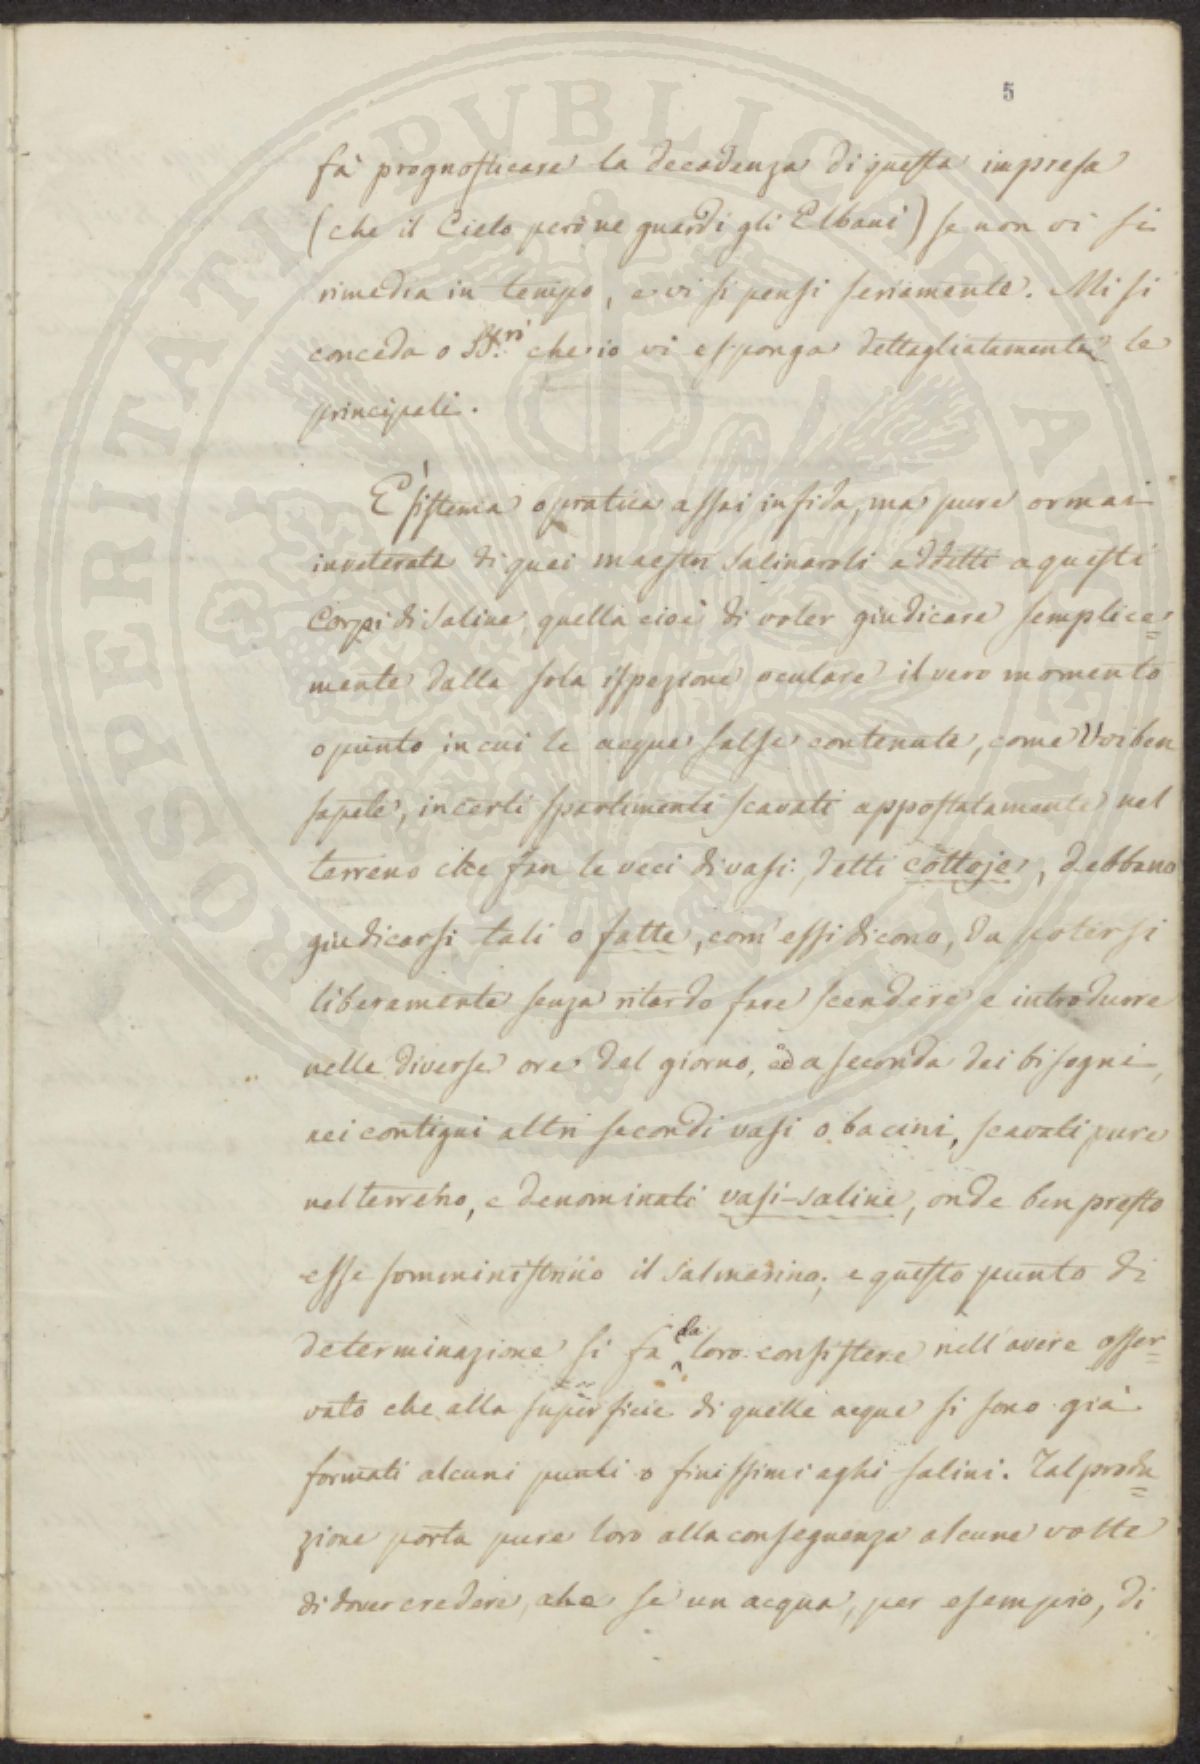 5
fà prognosticare la decadenza di questa impresa
(che il Cielo però ne guardi gli Elbani) se non vi si
rimedia in tempo, e vi si pensi seriamente. Mi si
conceda o che io vi esponga dettagliatamente le
principali.
E' sistema o pratica assai infida, ma pure ormai
inveterata di quei maestri Salinaroli addetti a questi
Corpi di Saline, quella cioè di voler giudicare semplice=
mente dalla sola ispezione oculare il vero momento
o punto in cui le acque salse contenute, come Voi ben
sapete, in certi spartimenti scavati appostatamente nel
terreno che fan le veci di vasi, detti cottoje, debbano
giudicarsi tali o fatte, com' essi dicono, da potersi
liberamente senza ritardo fare scendere e introdurre
nelle diverse ore del giorno, ed a seconda dei bisogni,
nei contigui altri secondi vasi o bacini, scavati pure
nel terreno, e denominati vasi-saline, onde ben presto
esse somministrino il Salmarino; e questo punto di
determinazione si fa da loro consistere nell'avere osser=
vato che alla superficie di quelle acque si sono già
formati alcuni punti o finissimi aghi salini. Tal produ=
zione porta pure loro alla conseguenza alcune volte
di dover credere, che se un acqua, per esempio, di
PROSPERITATI PVBLICAE AVGENDAE